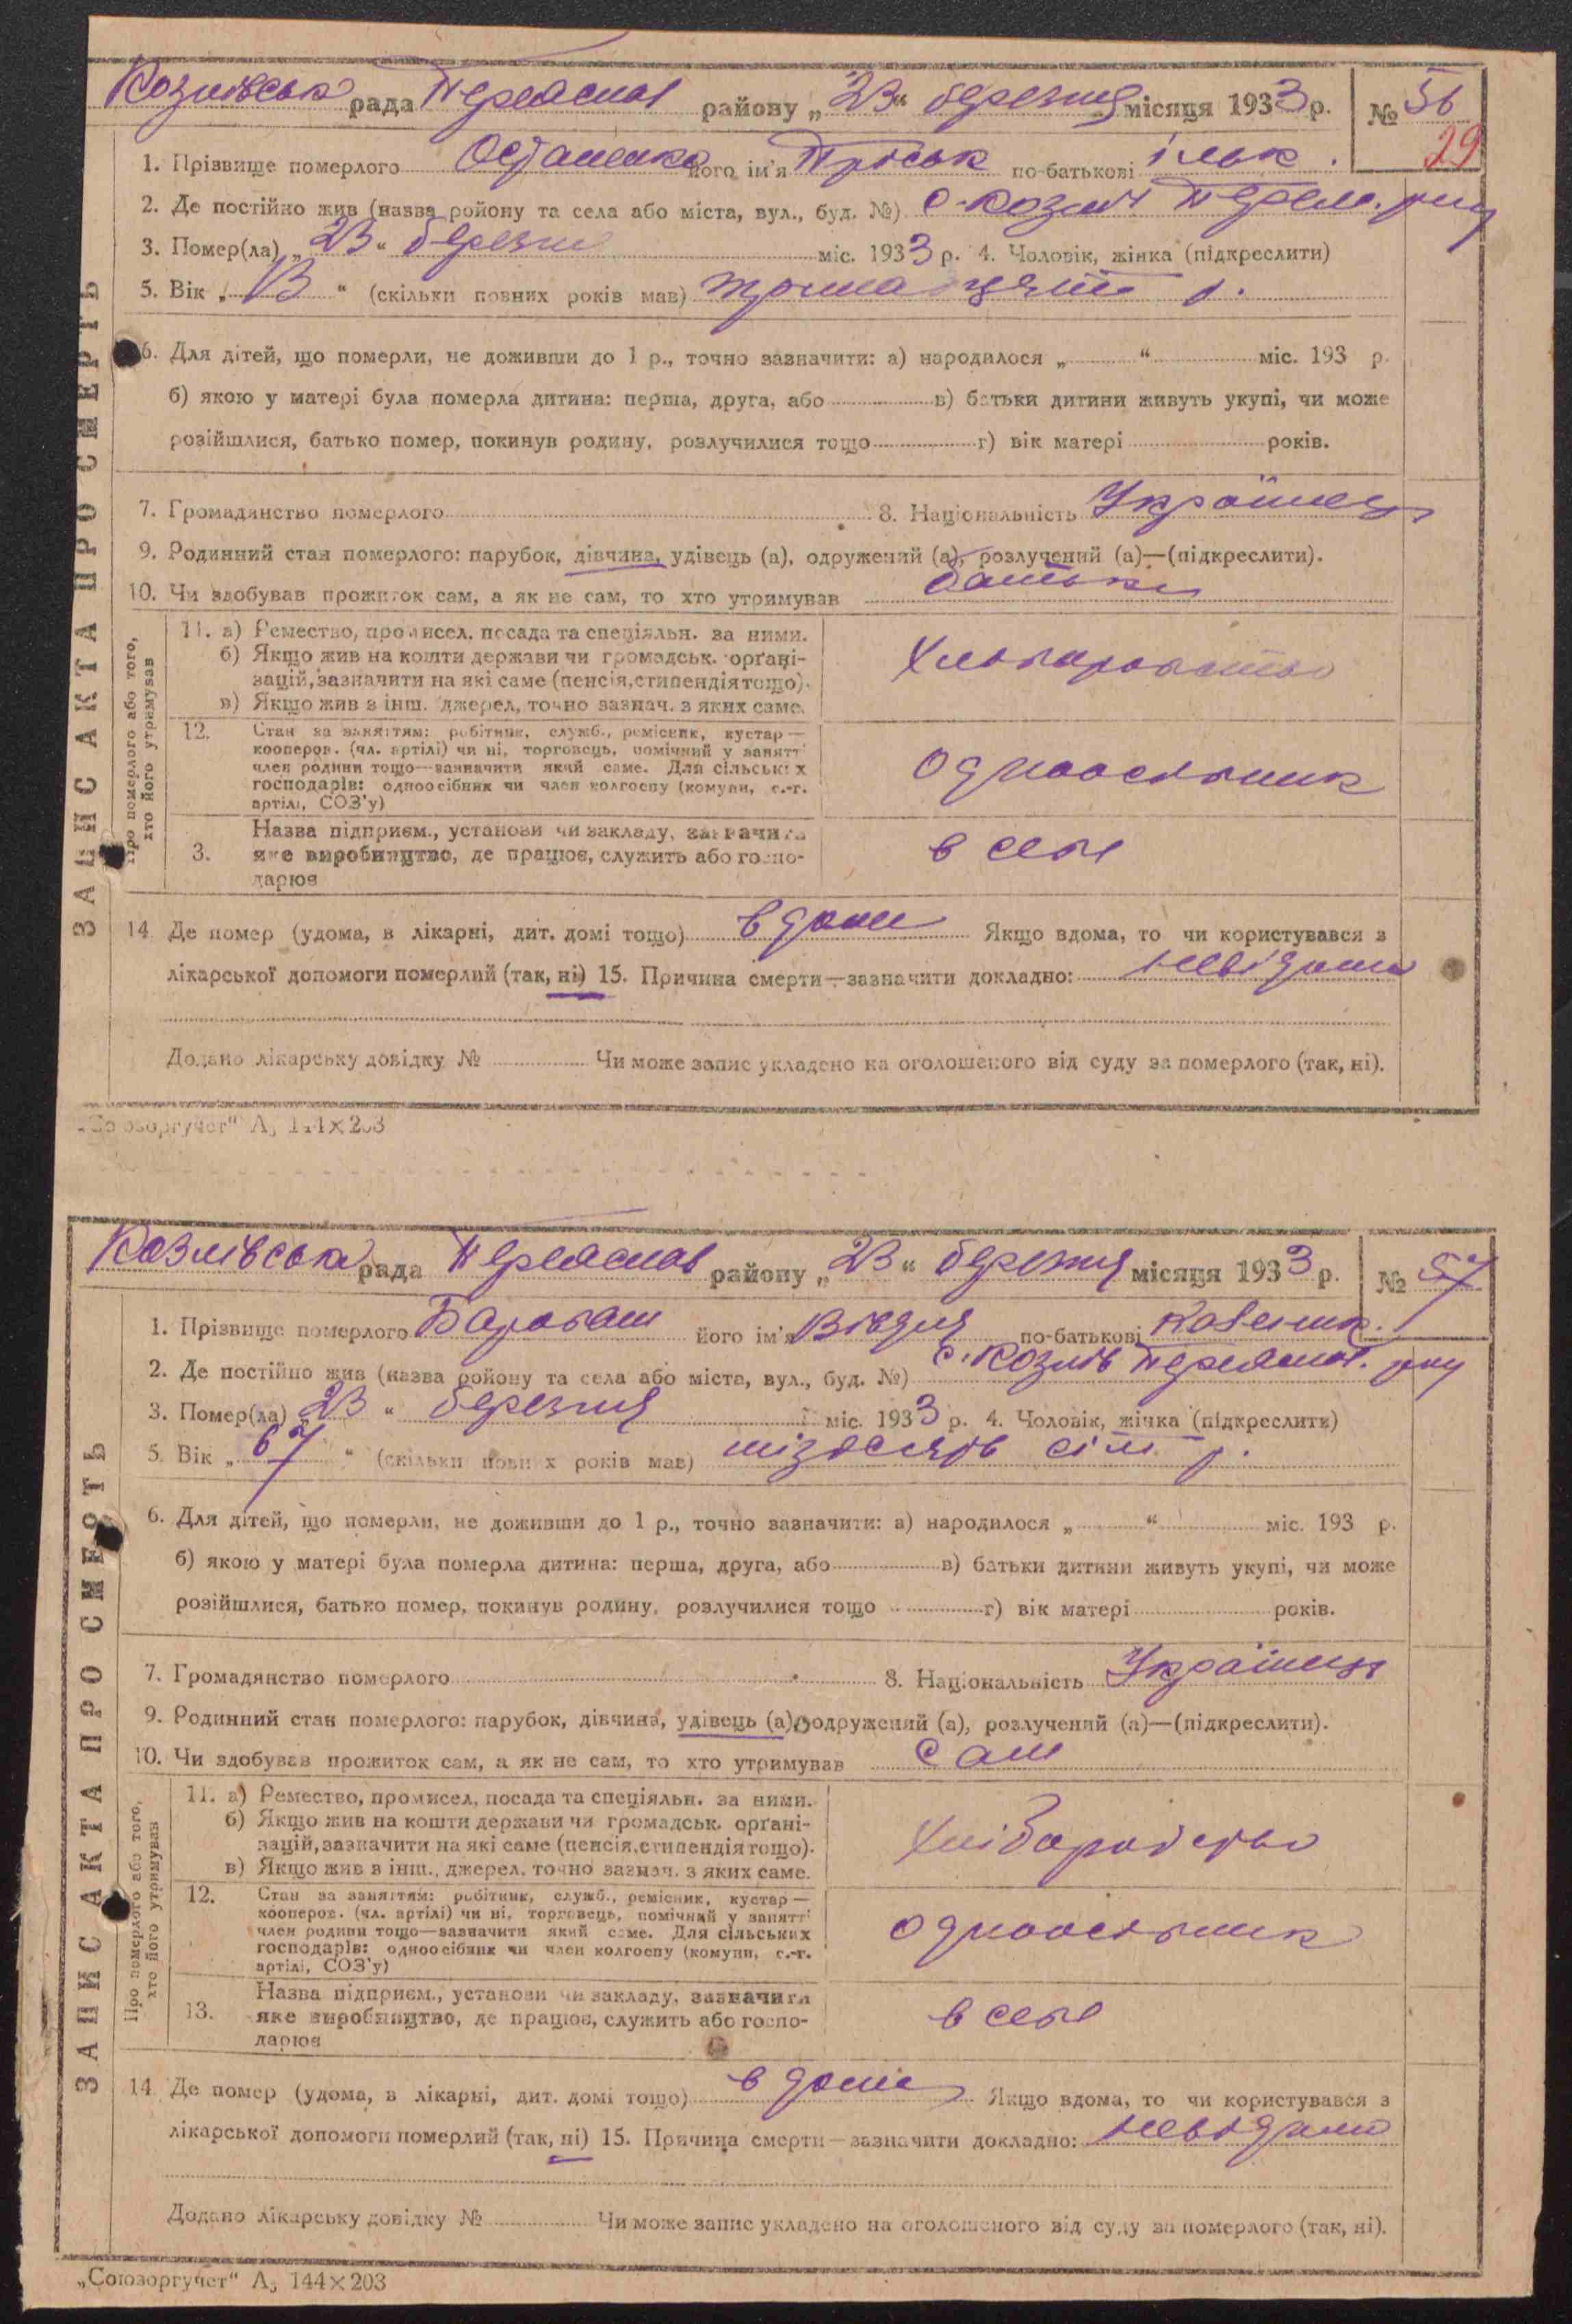 Козлівськ рада Переяслав району „23“ березня місяця 1933 р. № 56
29
1. Прізвище померлого Остапенко його ім'я Пріськ по-батькові ільк.
2. Де постійно жив (назва ройону та села або міста, вул., буд. №) с. Козлів Переяс. р-ну
3. Помер(ла) „23“ березня міс. 1933 р. 4. Чоловік, жінка (підкреслити)
5. Вік „13“ (скільки повних років мав) тринацять р.
6. Для дітей, що померли, не доживши до 1 р., точно зазначити: а) народилося „ “ міс. 193 р.
б) якою у матері була померла дитина: перша, друга, або в) батьки дитини живуть укупі, чи може
розійшлися, батько помер, покинув родину, розлучилися тощо г) вік матері років.
7. Громадянство померлого 8. Національність Українець
9. Родинний стан померлого: парубок, дівчина, удівець (а), одружений (а), розлучений (а)—(підкреслити).
10. Чи здобував прожиток сам, а як не сам, то хто утримував батьки
ЗАПИС АКТА ПРО СМЕРТЬ
Про померлого або того,
хто його утримував
11. а) Ремество, промисел, посада та спеціяльн. за ними.
б) Якщо жив на кошти держави чи громадськ. орґані-
зацій, зазначити на які саме (пенсія, стипендія тощо).
в) Якщо жив з інш. джерел, точно зазнач. з яких саме.
12. Стан за заняттям: робітник, служб., ремісник, кустар—
кооперов. (чл. артілі) чи ні, торговець, помічний у занятті
член родини тощо—зазначити який саме. Для сільських
господарів: одноосібник чи член колгоспу (комуни, с.-г.
артілі, СОЗ'у)
одноосібник
3. Назва підприєм., установи чи закладу, зазначити
яке виробництво, де працює, служить або госпо-
дарює
в селі
14 Де помер (удома, в лікарні, дит. домі тощо) вдома Якщо вдома, то чи користувався з
лікарської допомоги померлий (так, ні) 15. Причина смерти—зазначити докладно: невідома
Додано лікарську довідку № Чи може запис укладено на оголошеного від суду за померлого (так, ні).
„Союзоргучет“ А₅ 144×203
Козлівська рада Переяслав району „23“ березня місяця 1933 р. № 57
1. Прізвище померлого його ім'я Явдоха по-батькові
2. Де постійно жив (назва ройону та села або міста, вул., буд. №) с. Козлів Переяслав. р-ну
3. Помер(ла) „23“ березня міс. 1933 р. 4. Чоловік, жінка (підкреслити)
5. Вік „67“ (скільки повних років мав) шізьдесять сім р.
6. Для дітей, що померли, не доживши до 1 р., точно зазначити: а) народилося „ “ міс. 193 р.
б) якою у матері була померла дитина: перша, друга, або в) батьки дитини живуть укупі, чи може
розійшлися, батько помер, покинув родину, розлучилися тощо г) вік матері років.
7. Громадянство померлого 8. Національність Українець
9. Родинний стан померлого: парубок, дівчина, удівець (а), одружений (а), розлучений (а)—(підкреслити).
10. Чи здобував прожиток сам, а як не сам, то хто утримував сам
ЗАПИС АКТА ПРО СМЕРТЬ
Про померлого або того,
хто його утримував
11. а) Ремество, промисел, посада та спеціяльн. за ними.
б) Якщо жив на кошти держави чи громадськ. орґані-
зацій, зазначити на які саме (пенсія, стипендія тощо).
в) Якщо жив з інш., джерел, точно зазнач. з яких саме.
Хліборобство
12. Стан за заняттям: робітник, служб., ремісник, кустар—
кооперов. (чл. артілі) чи ні, торговець, помічний у занятті
член родини тощо—зазначити який саме. Для сільських
господарів: одноосібник чи член колгоспу (комуни, с.-г.
артілі, СОЗ'у)
одноосібник
13. Назва підприєм., установи чи закладу, зазначити
яке виробництво, де працює, служить або госпо-
дарює
в селі
14 Де помер (удома, в лікарні, дит. домі тощо) в домі Якщо вдома, то чи користувався з
лікарської допомоги померлий (так, ні) 15. Причина смерти—зазначити докладно: невідомо
Додано лікарську довідку № Чи може запис укладено на оголошеного від суду за померлого (так, ні).
„Союзоргучет“ А₅ 144×203